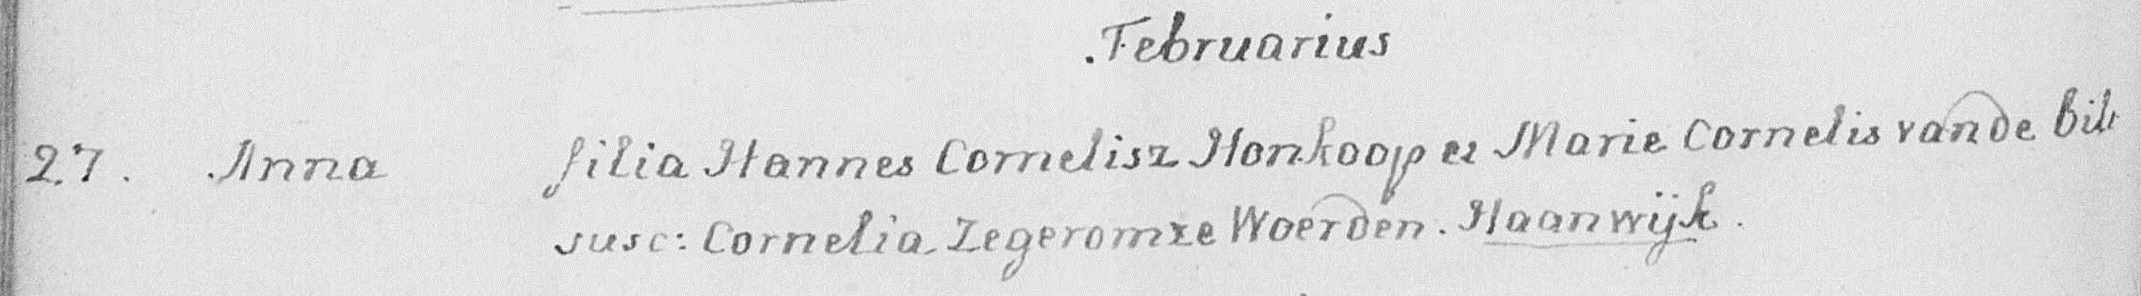 Februarius
27. Anna filia Hannes Cornelisz Honkoop et Marie Cornelis van de bilt
susc: Cornelia Zegeromze Woerden. Haanwijk.